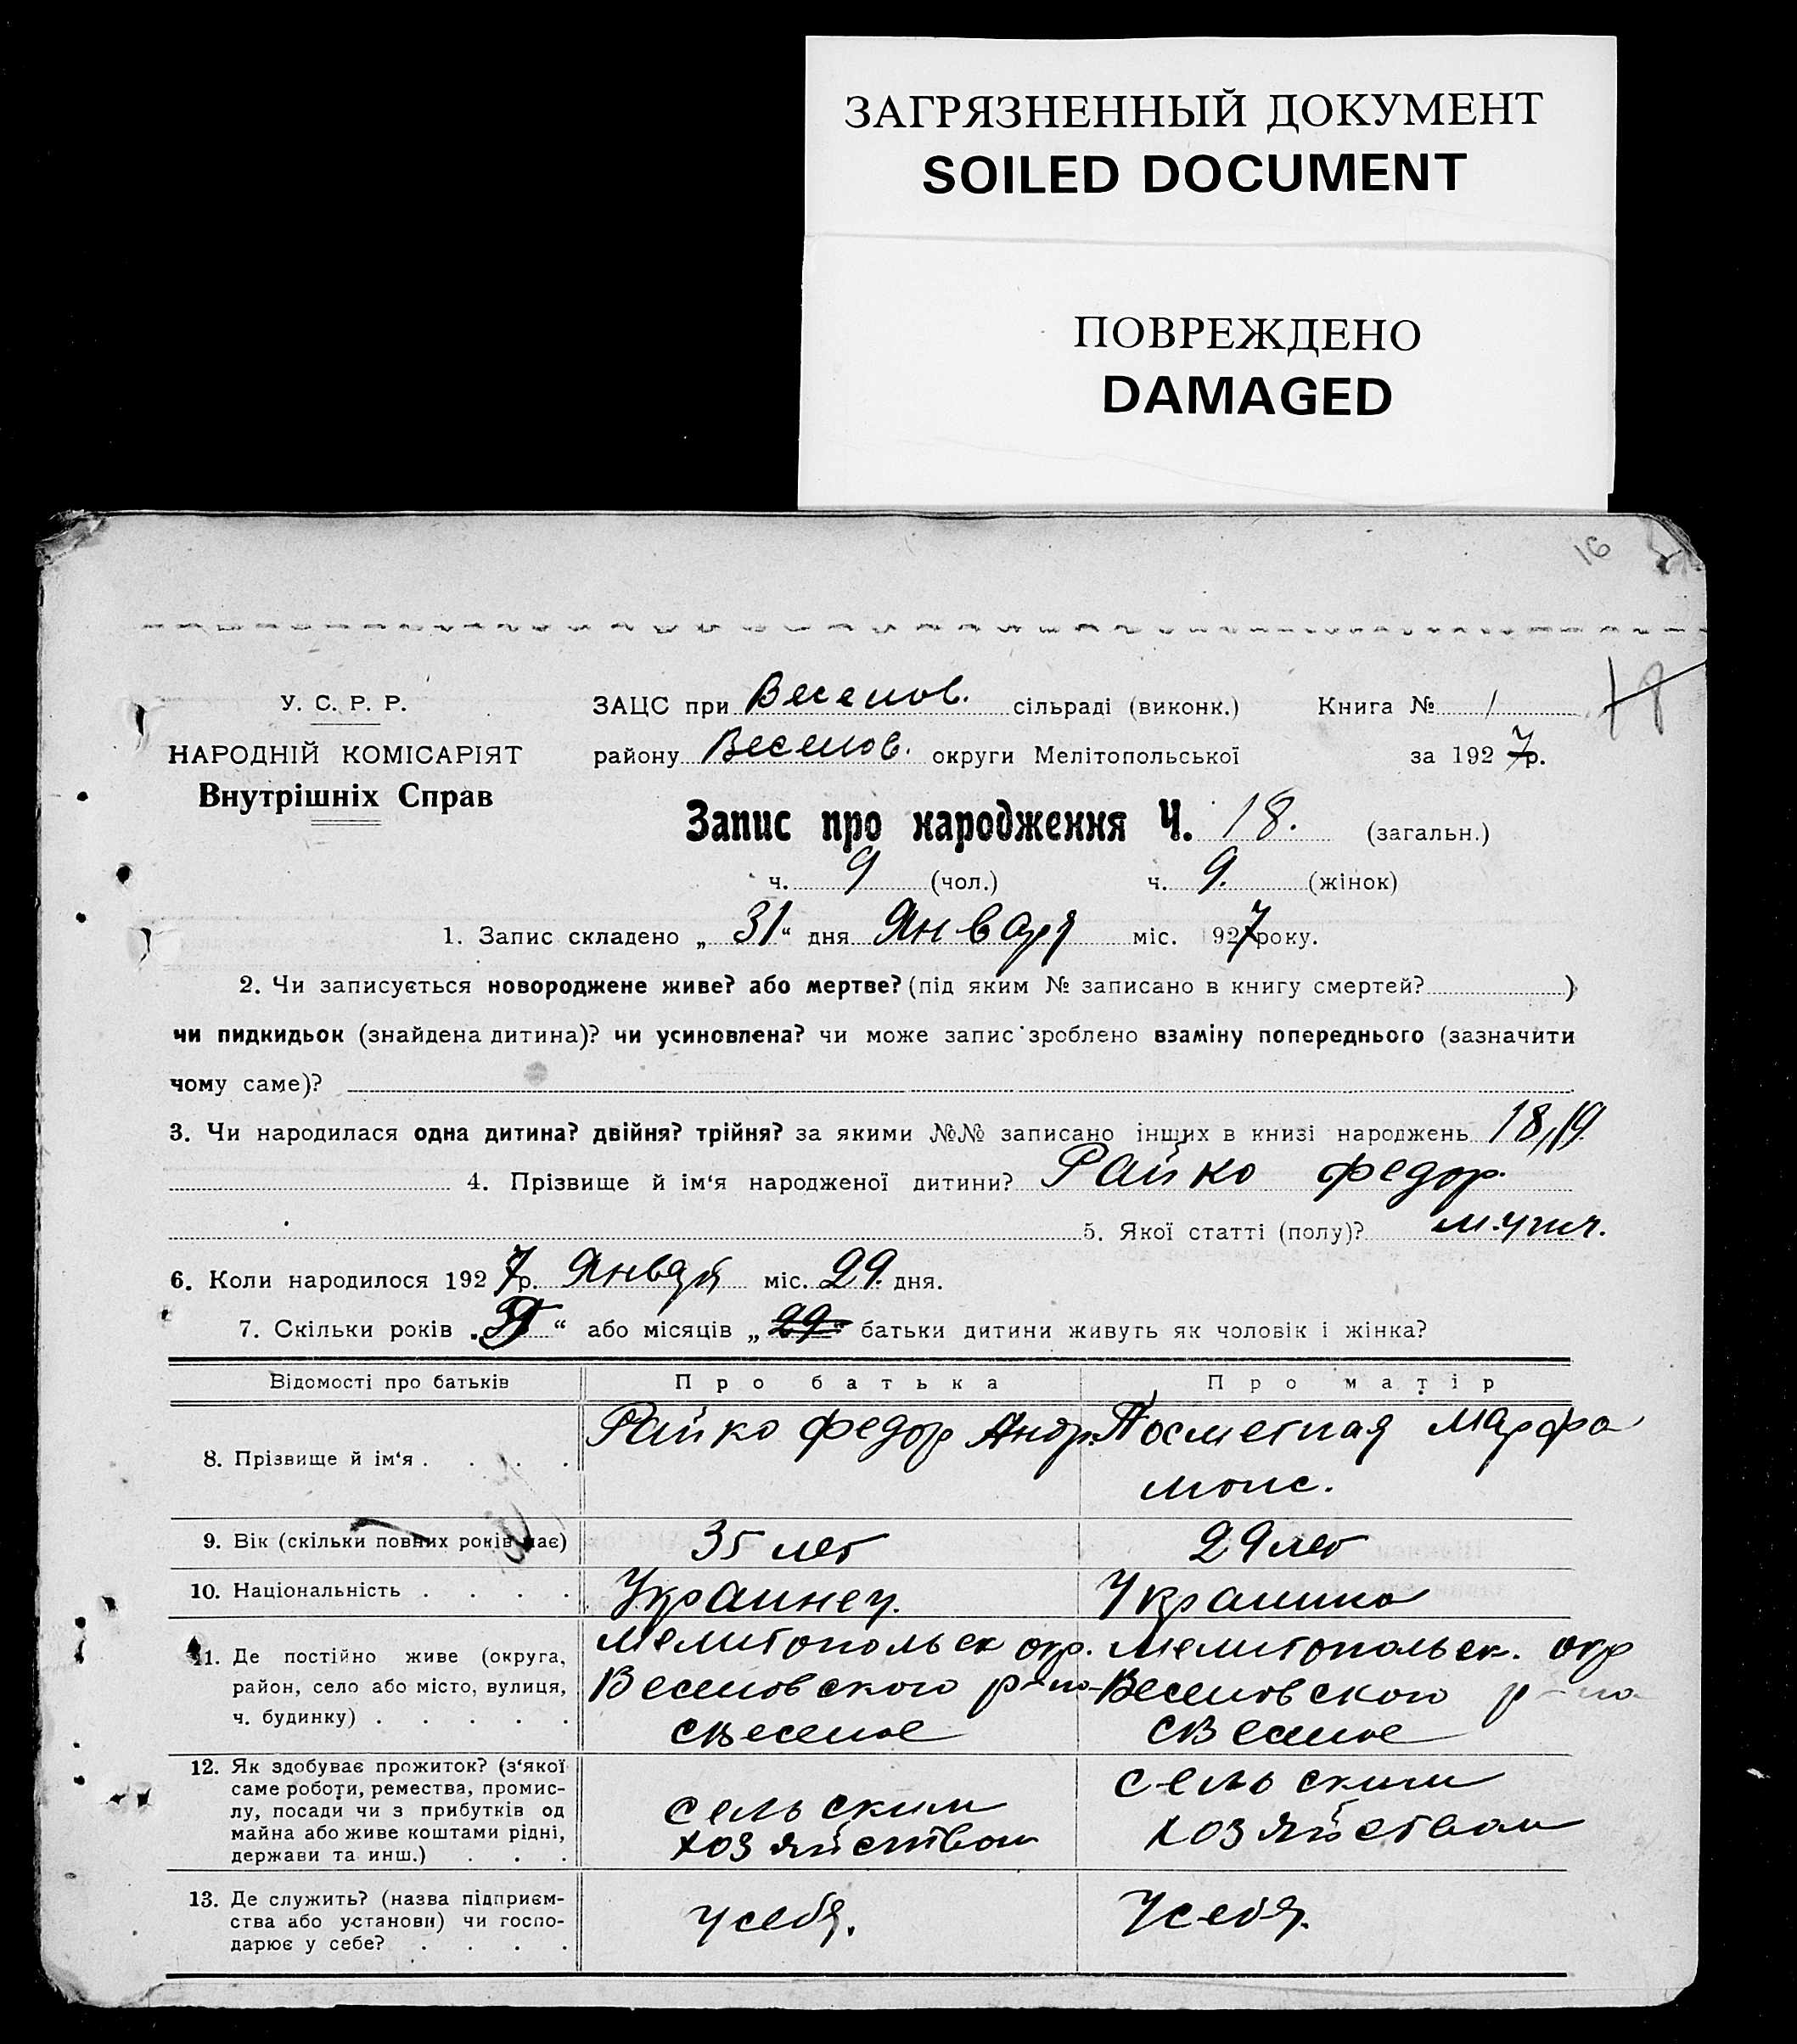 ЗАГРЯЗНЕННЫЙ ДОКУМЕНТ
SOILED DOCUMENT
ПОВРЕЖДЕНО
DAMAGED
16
18
У. С. Р. Р.
НАРОДНІЙ КОМІСАРІЯТ
Внутрішніх Справ
ЗАЦС при Веселов. сільраді (виконк.) Книга № 1
району Веселов. округи Мелітопольської за 1927 р.
Запис про народження Ч. 18. (загальн.)
ч. 9 (чол.) ч. 9. (жінок)
1. Запис складено „31“ дня Января міс. 1927 року.
2. Чи записується новороджене живе? або мертве? (під яким № записано в книгу смертей? )
чи пидкидьок (знайдена дитина)? чи усиновлена? чи може запис зроблено взаміну попереднього (зазначити
чому саме)?
3. Чи народилася одна дитина? двійня? трійня? за якими №№ записано інщих в книзі народжень 18,19
4. Прізвище й ім‘я народженої дитини? Райко Федор.
5. Якої статті (полу)? мужч.
6. Коли народилося 1927 р. Января міс. 29. дня.
7. Скільки років „ “ або місяців „29“ батьки дитини живуть як чоловік і жінка?
Відомості про батьків Про батька Про матір
8. Прізвище й ім‘я . . . . Райко Федор Андр. Посметная Марфа
моис.
9. Вік (скільки повних років має) 35 лет 29 лет
10. Національність . . . . Украинец. Украинка
11. Де постійно живе (округа, район, село або місто, вулиця, ч. будинку) . . . . .
Мелитопольск окр. Мелитопольск. окр
Веселовского р-на Веселовского р-на
с Веселое с Веселое
12. Як здобуває прожиток? (з‘якої саме роботи, ремества, промис-
лу, посади чи з прибутків од
майна або живе коштами рідні,
держави та инш.) . . .
сельским сельским
хозяйством хозяйством
13. Де служить? (назва підприєм-
ства або установи) чи госпо-
дарює у себе? . . . .
у себя. у себя.